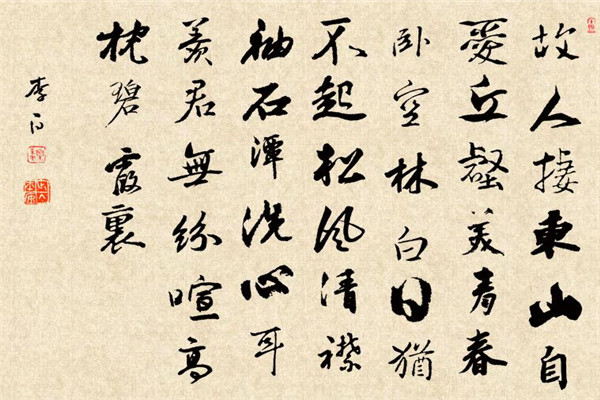 故人棲東山自
愛丘壑美青春
卧空林白日猶
不起松風清襟
袖石潭洗心耳
羨君無紛喧高
枕碧霞裏
李白